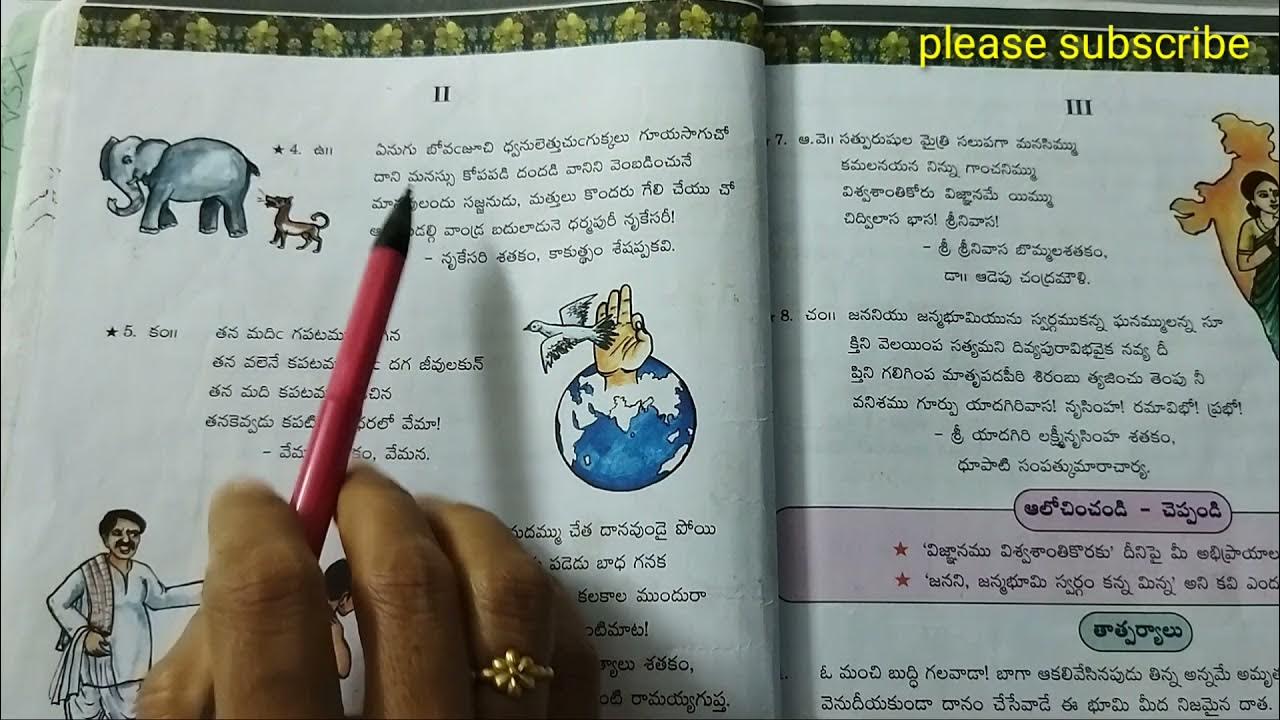 please subscribe
II
★ 4. ఉ॥ ఏనుగు బోవఁజూచి ధ్వనులెత్తుచుఁగుక్కలు గూయసాగుచో
దాని మనస్సు కోపపడి దందడి వానిని వెంబడించునే
సజ్జనుడు, మత్తులు కొందరు గేలి చేయు చో
వాండ్ర బదులాడునె ధర్మపురీ నృకేసరీ!
- నృకేసరి శతకం, కాకుత్థ్సం శేషప్పకవి.
★ 5. కం॥ తన మదిఁ
తన వలెనే దగ జీవులకున్
తన మది
తనకెవ్వడు వేమా!
వేమన.
చేత దానవుండై పోయి
పడెడు బాధ గనక
కలకాల ముందురా
శతకం,
రామయ్యగుప్త.
III
7. ఆ.వె॥ సత్పురుషుల మైత్రి సలుపగా మనసిమ్ము
కమలనయన నిన్ను గాంచనిమ్ము
విశ్వశాంతికోరు విజ్ఞానమే యిమ్ము
చిద్విలాస భాస! శ్రీనివాస!
- శ్రీ శ్రీనివాస బొమ్మలశతకం,
డా॥ ఆడెపు చంద్రమౌళి.
8. చం॥ జననియు జన్మభూమియును స్వర్గముకన్న ఘనమ్ములన్న సూ
క్తిని వెలయింప సత్యమని దివ్యపురావిభవైక నవ్య దీ
ప్తిని గలిగింప మాతృపదపీఠి శిరంబు త్యజించు తెంపు నీ
వనిశము గూర్పు యాదగిరివాస! నృసింహ! రమావిభో! ప్రభో!
- శ్రీ యాదగిరి లక్ష్మీనృసింహ శతకం,
ధూపాటి సంపత్కుమారాచార్య.
ఆలోచించండి - చెప్పండి
★ 'విజ్ఞానము విశ్వశాంతికొరకు' దీనిపై మీ
★ 'జనని, జన్మభూమి స్వర్గం కన్న మిన్న' అని కవి
తాత్పర్యాలు
ఓ మంచి బుద్ధి గలవాడా! బాగా ఆకలివేసినపుడు తిన్న అన్నమే
వెనుదీయకుండా దానం చేసేవాడే ఈ భూమి మీద నిజమైన దాత.